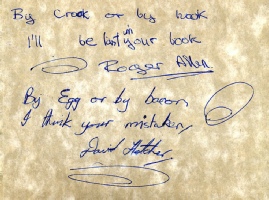 By Crook or by hook
I'll be last in your book
Rooger Allen
By Egg or by bacon,
I think your mistaken,
David Fletcher.